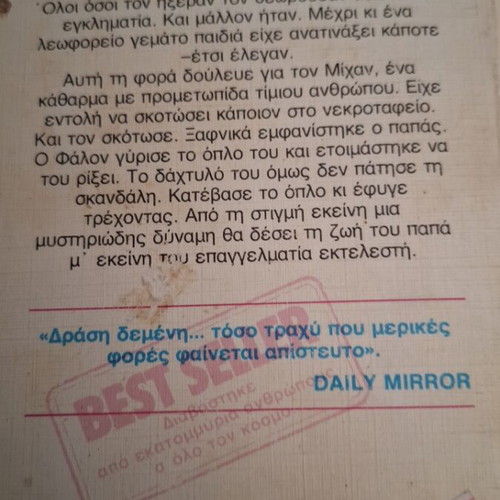 Όλοι όσοι τον ήξεραν τον
εγκληματία. Και μάλλον ήταν. Μέχρι κι ένα
λεωφορείο γεμάτο παιδιά είχε ανατινάξει κάποτε
–έτσι έλεγαν.
Αυτή τη φορά δούλευε για τον Μίχαν, ένα
κάθαρμα με προμετωπίδα τίμιου ανθρώπου. Είχε
εντολή να σκοτώσει κάποιον στο νεκροταφείο.
Και τον σκότωσε. Ξαφνικά εμφανίστηκε ο παπάς.
Ο Φάλον γύρισε το όπλο του και ετοιμάστηκε να
του ρίξει. Το δάχτυλό του όμως δεν πάτησε τη
σκανδάλη. Κατέβασε το όπλο κι έφυγε
τρέχοντας. Από τη στιγμή εκείνη μια
μυστηριώδης δύναμη θα δέσει τη ζωή του παπά
μ' εκείνη του επαγγελματία εκτελεστή.
«Δράση δεμένη... τόσο τραχύ που μερικές
φορές φαίνεται απίστευτο».
DAILY MIRROR
BEST SELLER
Διαβάστηκε
από εκατομμύρια ανθρώπους
σ όλο τον κόσμο